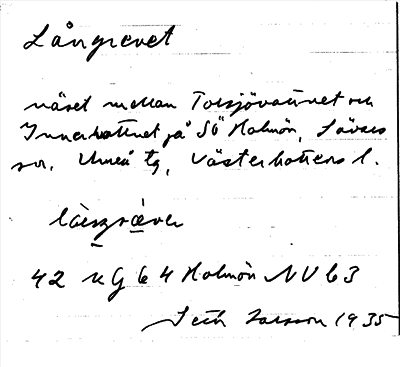 Långrevet
näset mellan Torsjövattnet och
Innerhattnet på SÖ Holmön, Sävars
sn. Umeå tg, Västerbottens l.
42 u G 6 4 Holmön NV 63
Seth Larsson 1935